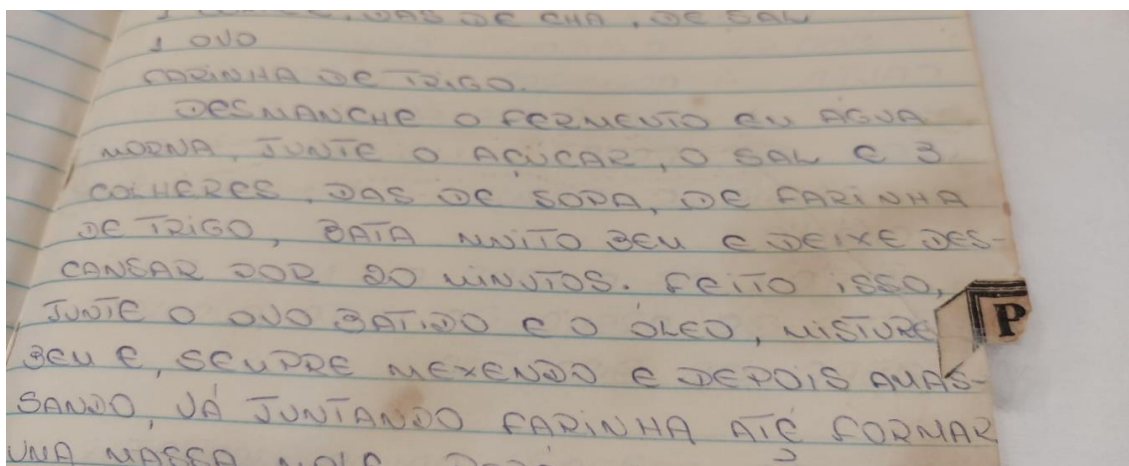 DAS DE CHÁ, DE SAL
1 OVO
FARINHA DE TRIGO.
DESMANCHE O FERMENTO EM ÁGUA
MORNA, JUNTE O AÇUCAR, O SAL E 3
COLHERES, DAS DE SOPA, DE FARINHA
DE TRIGO, BATA MUITO BEM E DEIXE DES-
CANSAR POR 20 MINUTOS. FEITO ISSO,
JUNTE O OVO BATIDO E O ÓLEO, MISTURE
P
BEM E, SEMPRE MEXENDO E DEPOIS AMAS-
SANDO, VÁ JUNTANDO FARINHA ATÉ FORMAR
UMA MASSA MOLE